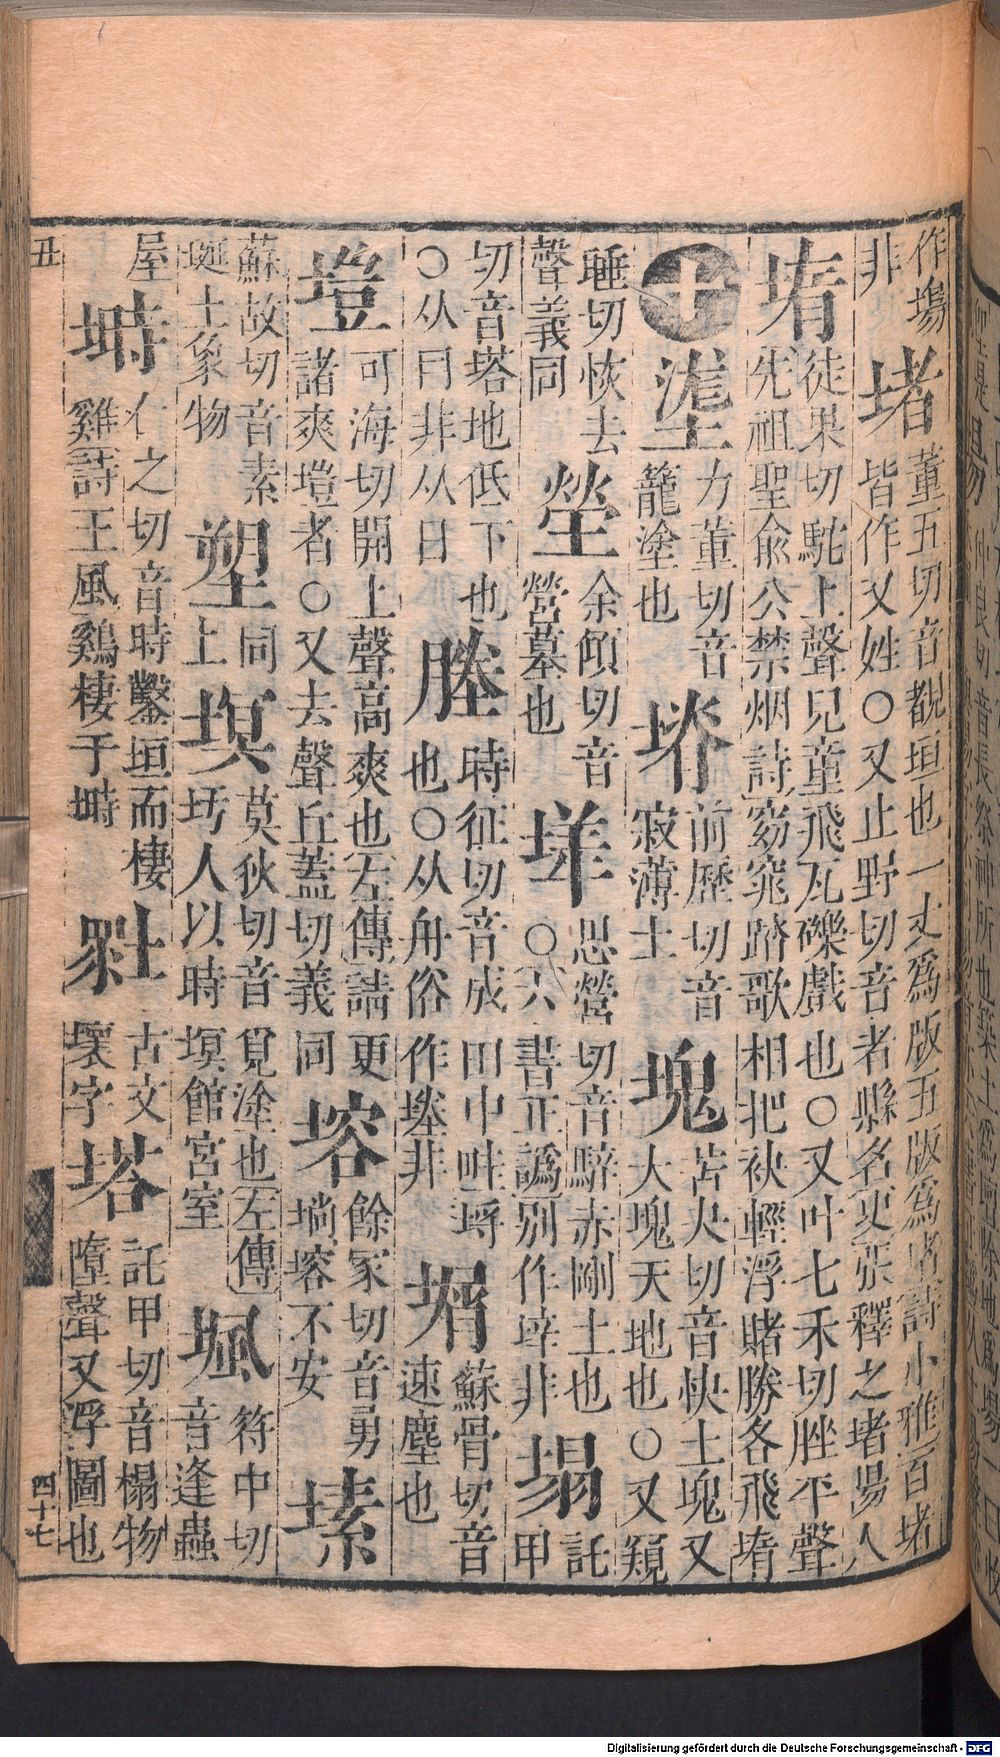 作塲
非
堵
董五切音覩垣也一丈爲版五版爲堵詩小雅百堵
皆作又姓○又止野切音者縣名吏張釋之堵陽人
墮
徒果切駝上聲兒童飛瓦礫戲也○又叶七禾切脞平聲
先祖聖兪公禁烟詩窈窕踏歌相把袂輕浮賭勝各飛墮
十
塧
力董切音
籠塗也
塉
前歷切音
寂薄土
塊
苦夬切音快土塊又
大塊天地也○又䫥
睡切恢去
聲義同
塋
余傾切音
營墓也
垶
思營切音騂赤剛土也
○六書正譌別作垶非
塌
託
甲
切音塔地低下也
○从曰非从日
塍
時征切音成田中畦埒
也○从舟俗作塖非
塮
蘇骨切音
速塵也
塏
可海切開上聲高爽也左傳請更
諸爽塏者○又去聲丘蓋切義同
塎
餘冢切音勇
塕塎不安
塐
蘇故切音素
埏土象物
塑
同
上
塓
莫狄切音覓塗也左傳
圬人以時塓館宮室
堸
符中切
音逢蟲
屋
塒
仁之切音時鑿垣而棲
雞詩王風鷄棲于塒
𡐦
古文
壞字
塔
託甲切音榻物
墮聲又浮圖也
丑
四十七
Digitalisierung gefördert durch die Deutsche Forschungsgemeinschaft - DFG